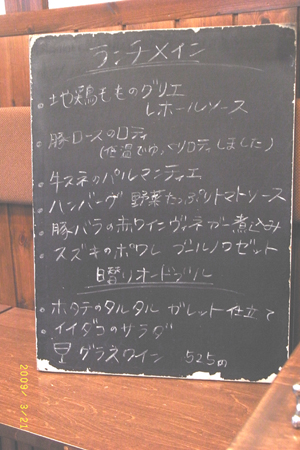 ランチメイン
地鶏もものグリエ
レホールソース
豚ロースのロティ
(低温でゆっくりロティしました)
牛スネのパルマンティエ
ハンバーグ 野菜たっぷりトマトソース
豚バラの赤ワインヴィネガー煮込み
スズキのポワレ ブールノワゼット
日替りオードブル
ホタテのタルタル ガレット仕立て
イイダコのサラダ
グラスワイン 525円
2009/3/21